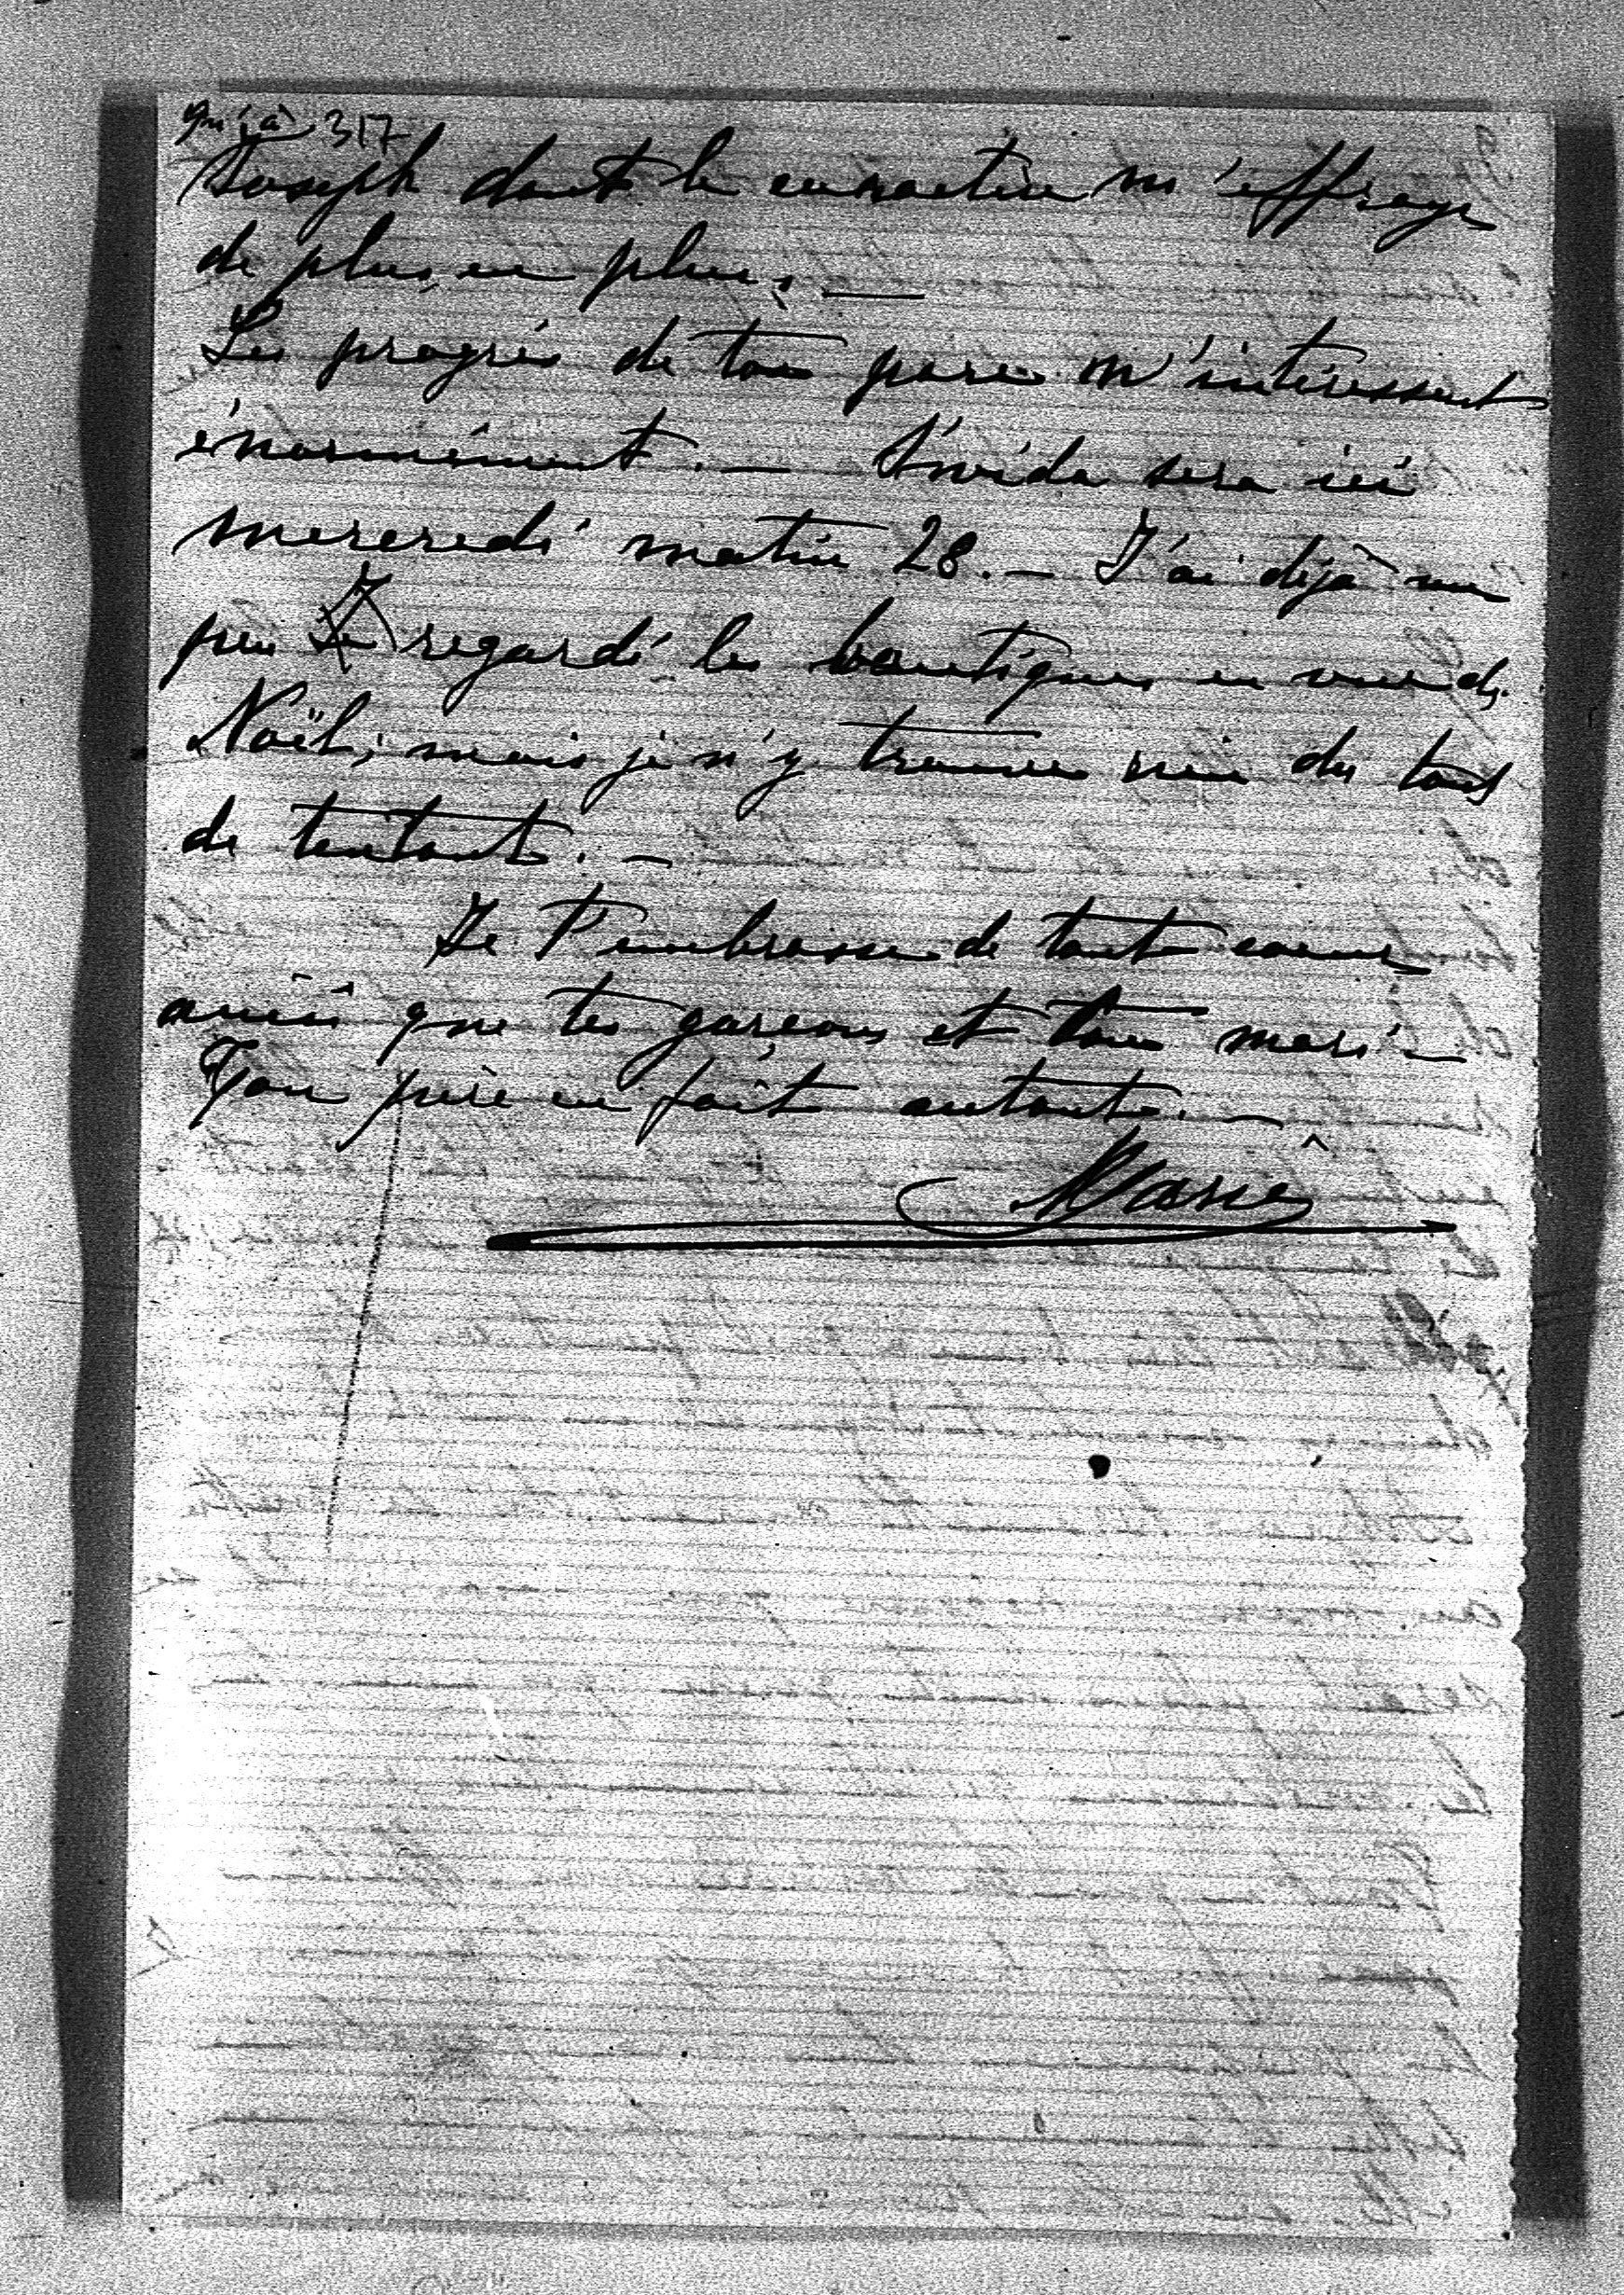 qu'à 317
Joseph dont le caractère m'effraye
de plus en plus. —
Les progrès de ton père m'intéressent
énormément. — sera ici
mercredi matin 28. — J'ai déjà un
peu regardé les boutiques en vue de
Noël, mais je n'y trouve rien du tout
de tentant. —
Je t'embrasse de tout coeur
ainsi que tes garçons et ton mari —
Ton père en fait autant. —